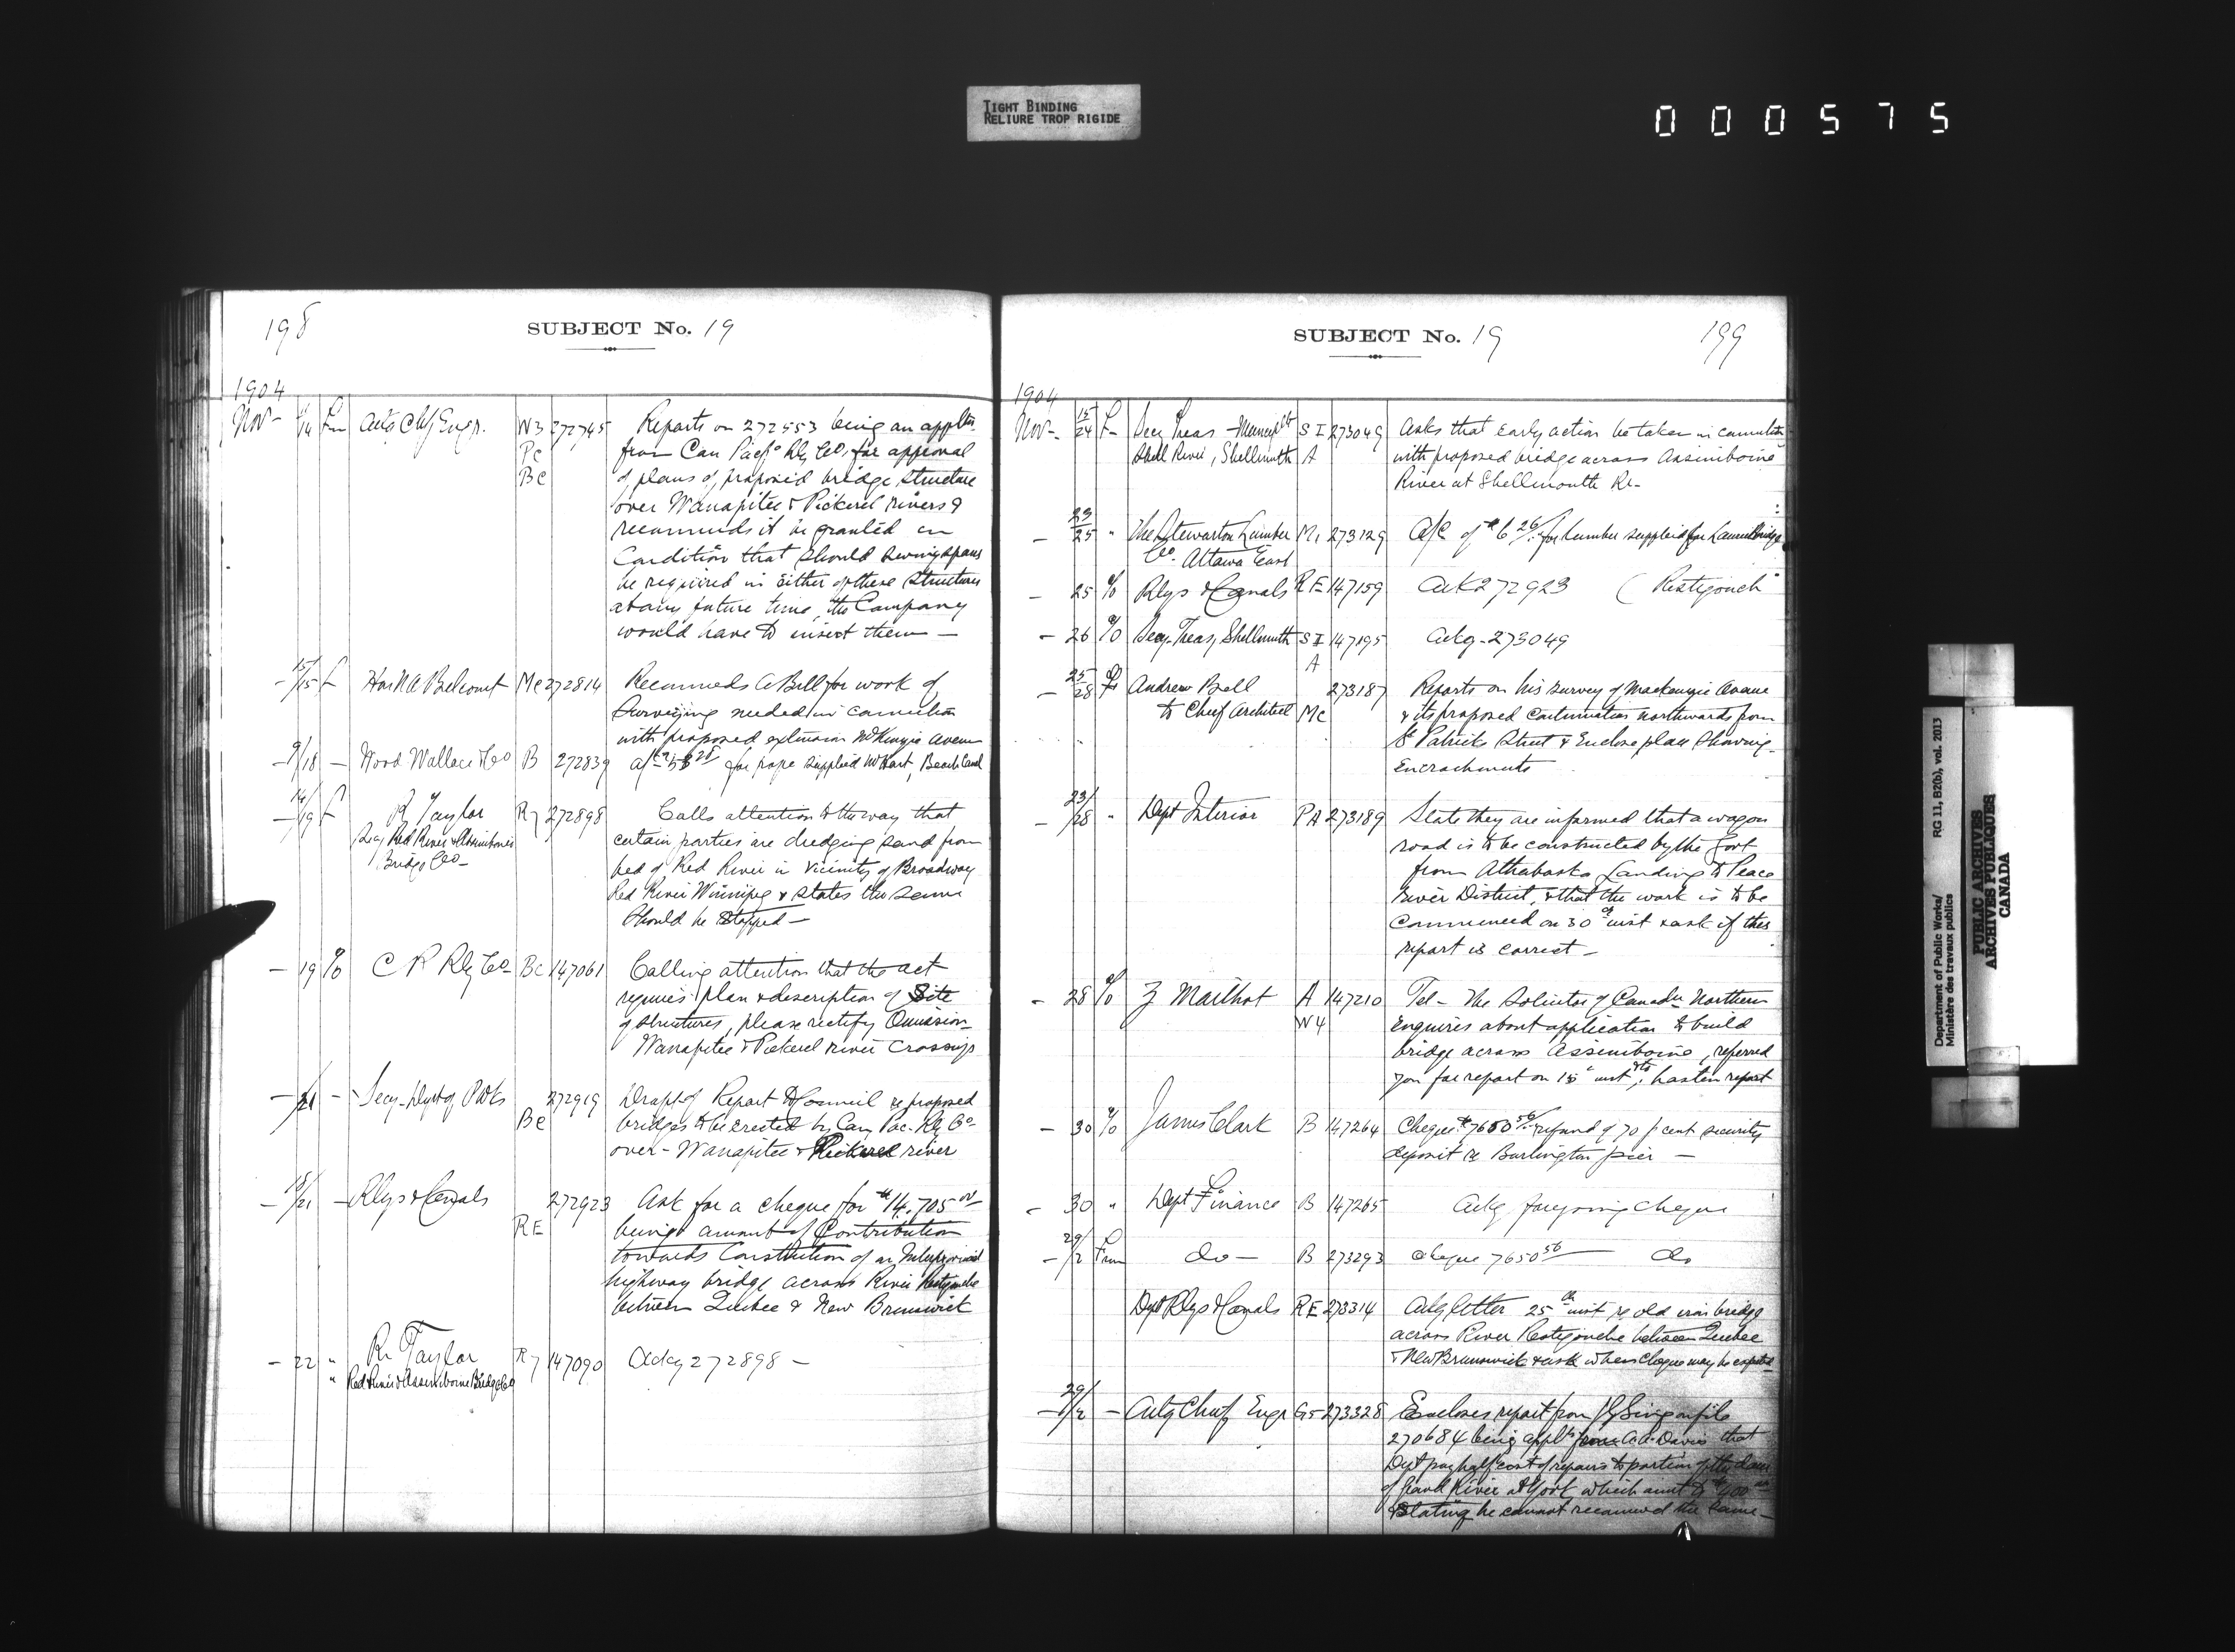 TIGHT BINDING
RELIURE TROP RIGIDE
000575
198
SUBJECT No. 19
1904
Nov - 14 Fm Actg Chf Engr. W3 272745 Reports on 272553 being an applt'n
Pc from Can Pacfc Rly Co. for approval
Bc of plans of proposed bridge structure
over Wanapitee & Pickerel rivers &
recommends it be granted on
Condition that should swing spans
be required in either of these structures
at any future time, the Company
would have to insert them —
- 15/15 f Hon N A Belcourt Mc 272814 Recommends A Bell for work of
Surveying needed in connection
with proposed extension McKenzie Avenue
- 9/18 - Wood Wallace & Co B 272839 for rope supplied Beach Canal
- 14/19 f R Taylor R7 272898 Calls attention to the way that
Secy Red River & Assiniboine certain parties are dredging sand from
Bridge Co - bed of Red River in vicinity of Broadway
Red River Winnipeg & states the same
should be stopped —
- 19 % C P Rly Co - Bc 147061 Calling attention that the act
requires plan & description of Site
of structures, please rectify Omission
Wanapitee & Pickerel river crossings
- 21 - Secy - Dept of P Wks 272919 Draft of Report to Council re proposed
Bc bridges to be erected by Can Pac. Rly Co
over - Wanapitee & Pickerel river
- 18/21 - Rlys & Canals 272923 Ask for a cheque for $14,705 00
RE being amount of Contribution
towards Construction of an Interprovincial
highway bridge across River Restigouche
between Quebec & New Brunswick
- 22 " R Taylor R7 147090 Ackg 272898 -
" Red River & Assiniboine Bridge Co
SUBJECT No. 19
199
1904
Nov - 15/24 F- Secy Treas - Municiplty S I 273049 Asks that early action be taken in connection
Shell River, Shellmouth A with proposed bridge across Assiniboine
River at Shellmouth Re-
- 23/25 " The Stewarton Lumber M1 273129 A/c of $6 26/ for lumber supplied for Laurier bridge
Co. Ottawa East
- 25 % Rlys & Canals RE 147159 Ack 272923 (Restigouch
- 26 % Secy-Treas Shellmuth S I 147195 Ackg - 273049
A
- 25/28 Andrew Bell 273187 Reports on his survey of Mackenzie Avenue
to Chief Architect Mc & its proposed Continuation northwards from
St Patrick Street & Enclose plan showing
Encrachments
- 23/28 " Dept Interior PA 273189 State they are informed that a wagon
road is to be constructed by the Govt
from Athabaska Landing to Peace
River District, & that the work is to be
Commenced on 30th inst & ask if this
report is correct -
- 28 % Z Mailhot A 147210 Tel - The Solicitor of Canada Northern
W4 Enquires about application to build
bridge across Assiniboine, referred
you for report on 15 inst, hasten report
- 30 % James Clark B 147264 Cheque $7650 56/ refund of 70 p cent security
deposit re Burlington pier —
- 30 " Dept Finance B 147265 Ackg foregoing cheque
- 29/2 From do - B 273293 cheque 7650 56 do
Dept Rlys & Canals RE 273314 Ackg letter 25th inst re old iron bridge
across River Restigouche between Quebec
& New Brunswick & ask when cheque may be expected
- 29/2 - Actg Chief Engr G5 273328 Encloses report from J G Sing on file
270684 being applt from A. Davis that
Dept pay half cost of repairs to portion of the dam
of Grand River at York which amt to $400
Stating he cannot recommend the same -
Department of Public Works/
Ministère des travaux publics
RG 11, B2(b), vol. 2013
PUBLIC ARCHIVES
ARCHIVES PUBLIQUES
CANADA